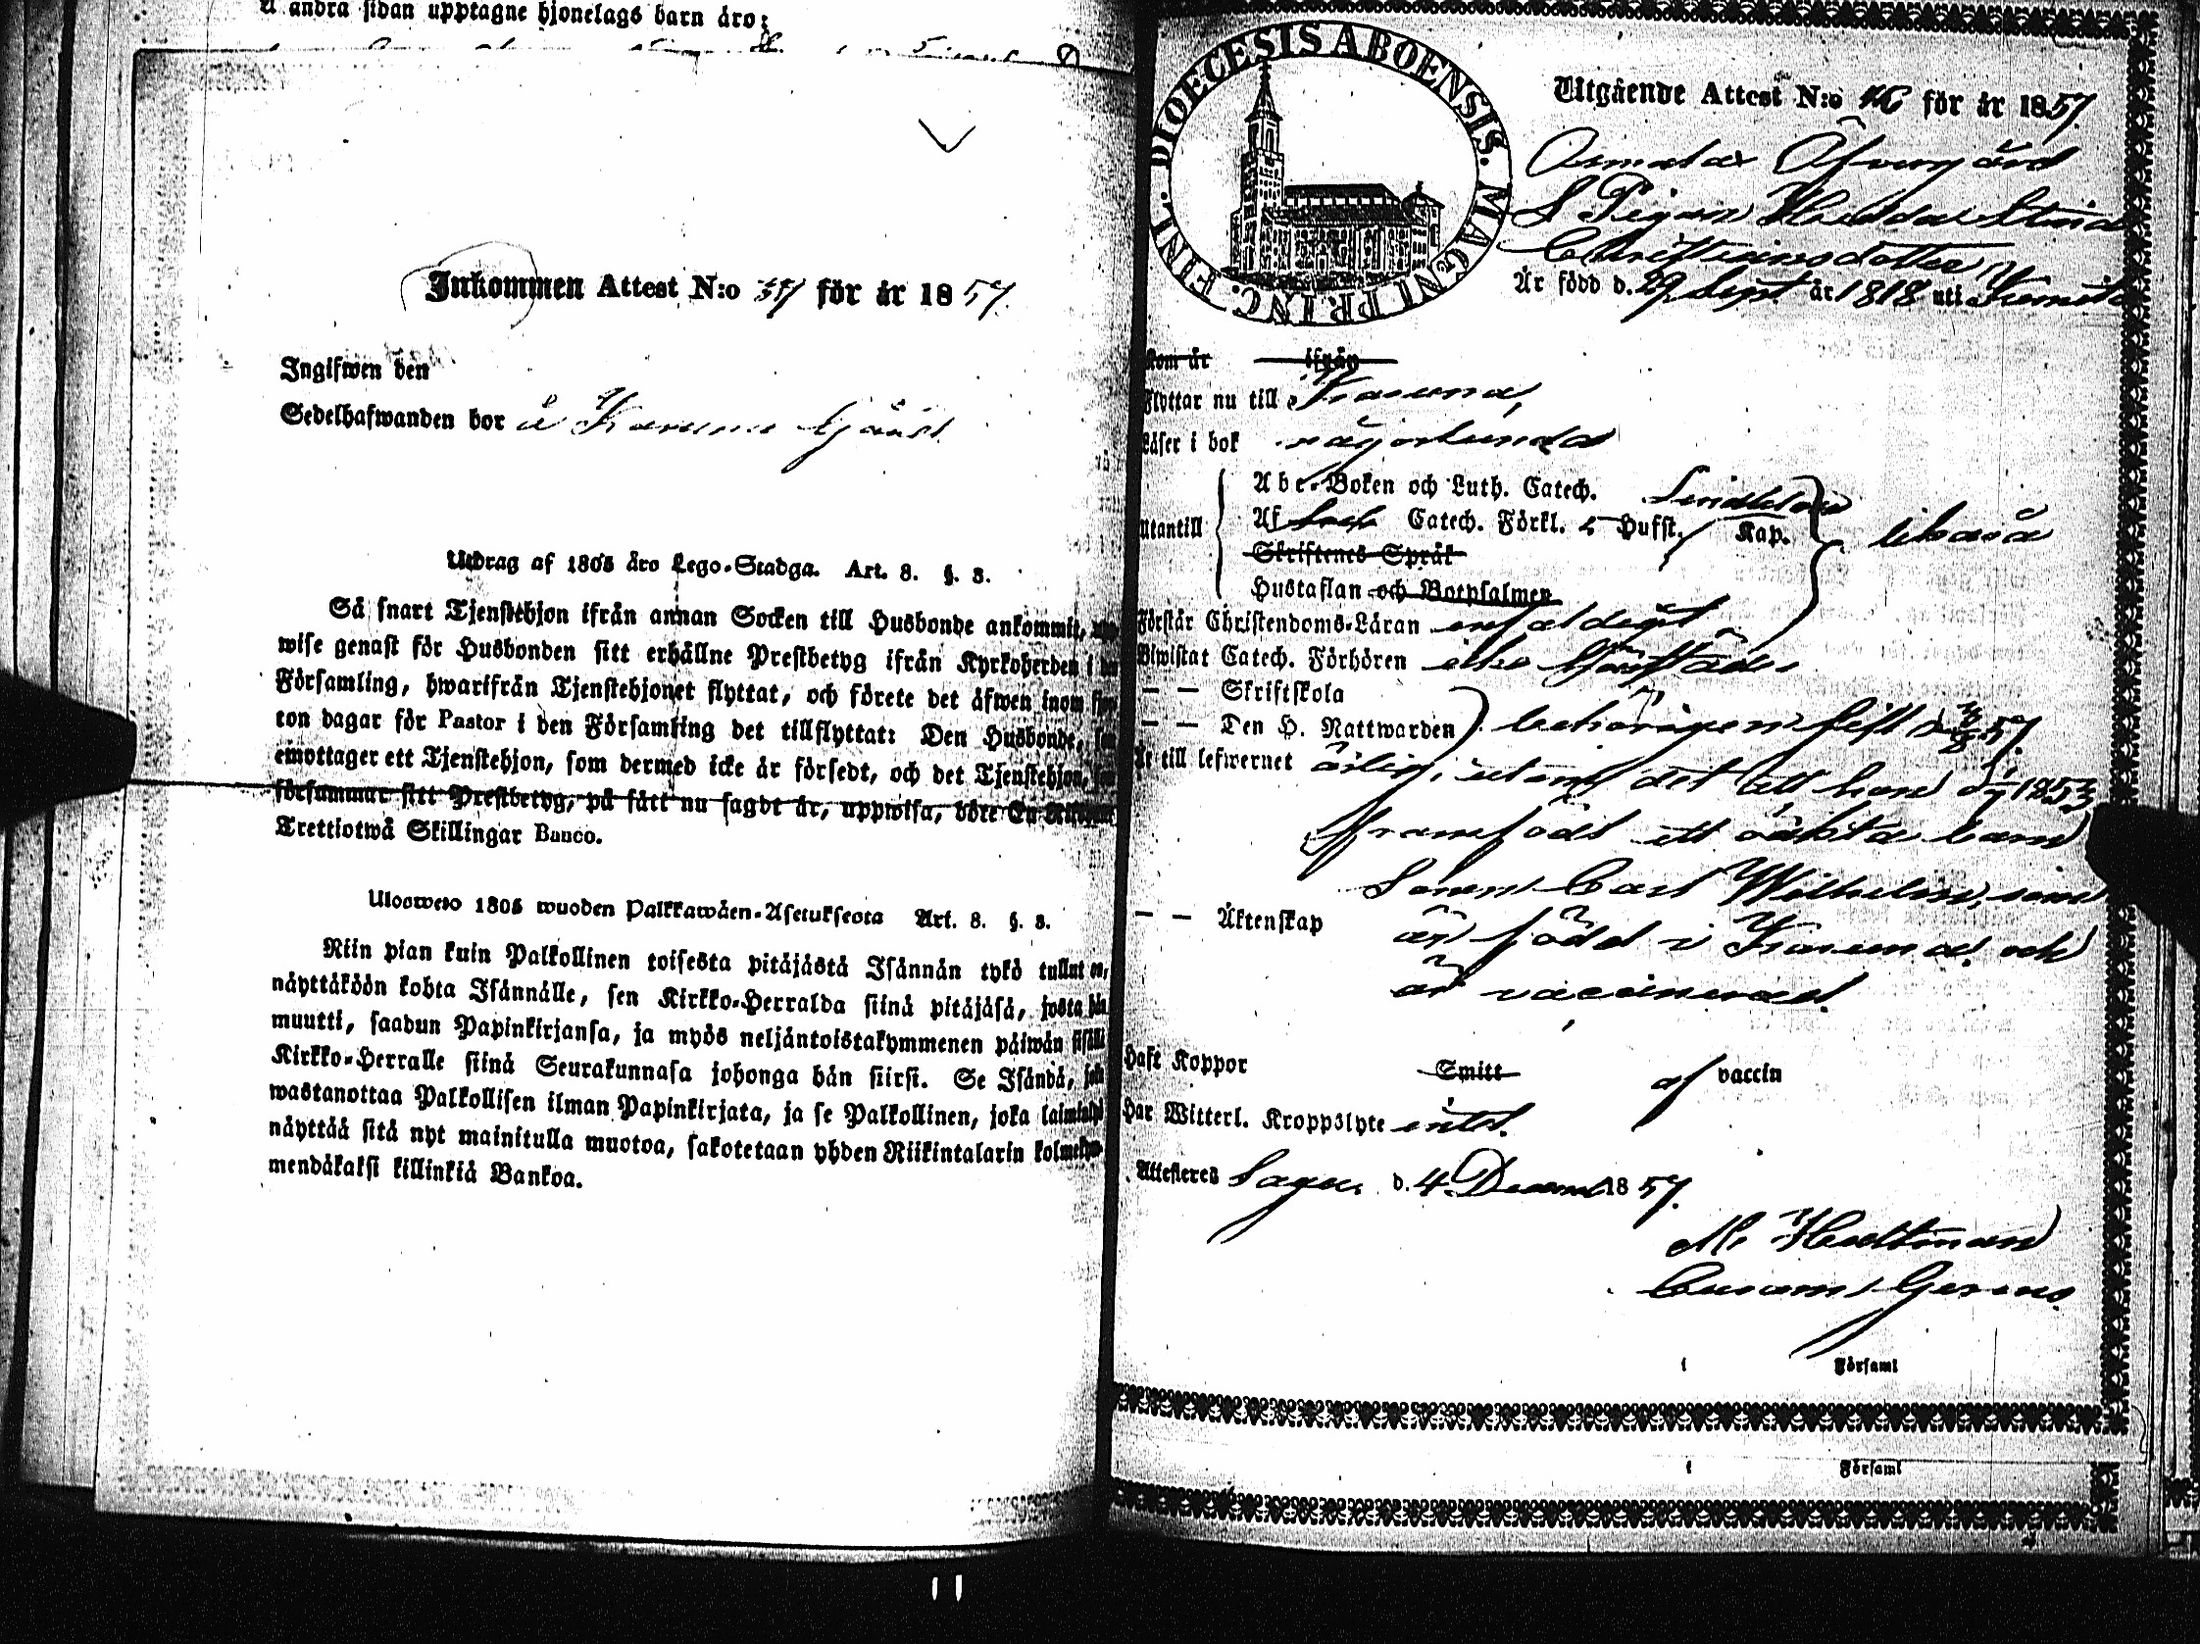 å andra sidan upptagne hjonelags barn äro:
Inkommen Attest N:o för år 1857.
Ingifwen den
Sedelhafwanden bor å Karuna Gård
Utdrag af 1805 års Lego-Stadga. Art. 8. §. 3.
Så snart Tjenstehjon ifrån annan Socken till Husbonde ankommit, upp-
wise genast för Husbonden sitt erhållne Prestbetyg ifrån Kyrkoherden i den
Församling, hwarifrån Tjenstehjonet flyttat, och förete det äfwen inom fjor-
ton dagar för Pastor i den Församling det tillflyttat: Den Husbonde, som
emottager ett Tjenstehjon, som dermed icke är försedt, och det Tjenstehjon, som
försummar sitt Prestbetyg, på sätt nu sagdt är, uppwisa, böte En Riksdaler
Trettiotwå Skillingar Banco.
Ulosweto 1805 wuoden Palkkawäen-Asetuksesta Art. 8. §. 3.
Niin pian kuin Palkollinen toisesta pitäjästä Isännän tykö tullut on,
näyttäköön kohta Isännälle, sen Kirkko-Herralda siinä pitäjäsä, josta hän
muutti, saadun Papinkirjansa, ja myös neljäntoistakymmenen päiwän sisällä
Kirkko-Herralle siinä Seurakunnasa johonga hän siirsi. Se Isändä, joka
wastanottaa Palkollisen ilman Papinkirjata, ja se Palkollinen, joka laiminlyö
näyttää sitä nyt mainitulla muotoa, sakotetaan yhden Riikintalarin kolmekym-
mendäkaksi killinkiä Bankoa.
DIOECESIS ABOENSIS. MAGNI PRINC. FINL.
Utgående Attest N:o 46 för år 1857.
Öfvergård
Pigan Hedda Stina
Christiansdotter
Är född d. 29 Sept år 1818 uti Kimito
Kom år ifrån
Flyttar nu till Karuna,
Läser i bok någorlunda
Abc-Boken och Luth. Catech.
utantill Af Catech. Förkl. Husst. Kap. likaså
Skriftenes Språk
Hustaflan och Botpsalmen
Förstår Christendoms-Läran enfaldigt
Biwistat Catech. Förhören
— — Skriftskola
— — Den H. Nattwarden behörigen sist 57.
Är till lefwernet ärlig, utom det att hon 1853
framfödt ett oäkta barn
Sonen Carl Wilhelm, som
— — Äktenskap är född i Karuna och
är vaccinerad.
Haft Koppor Smitt af vaccin
Har Witterl. Kroppslyte intet.
Attesteres Sagu d. 4 Decemb 1857.
M. Heltman
Curam Gerens
i Församl
i Församl